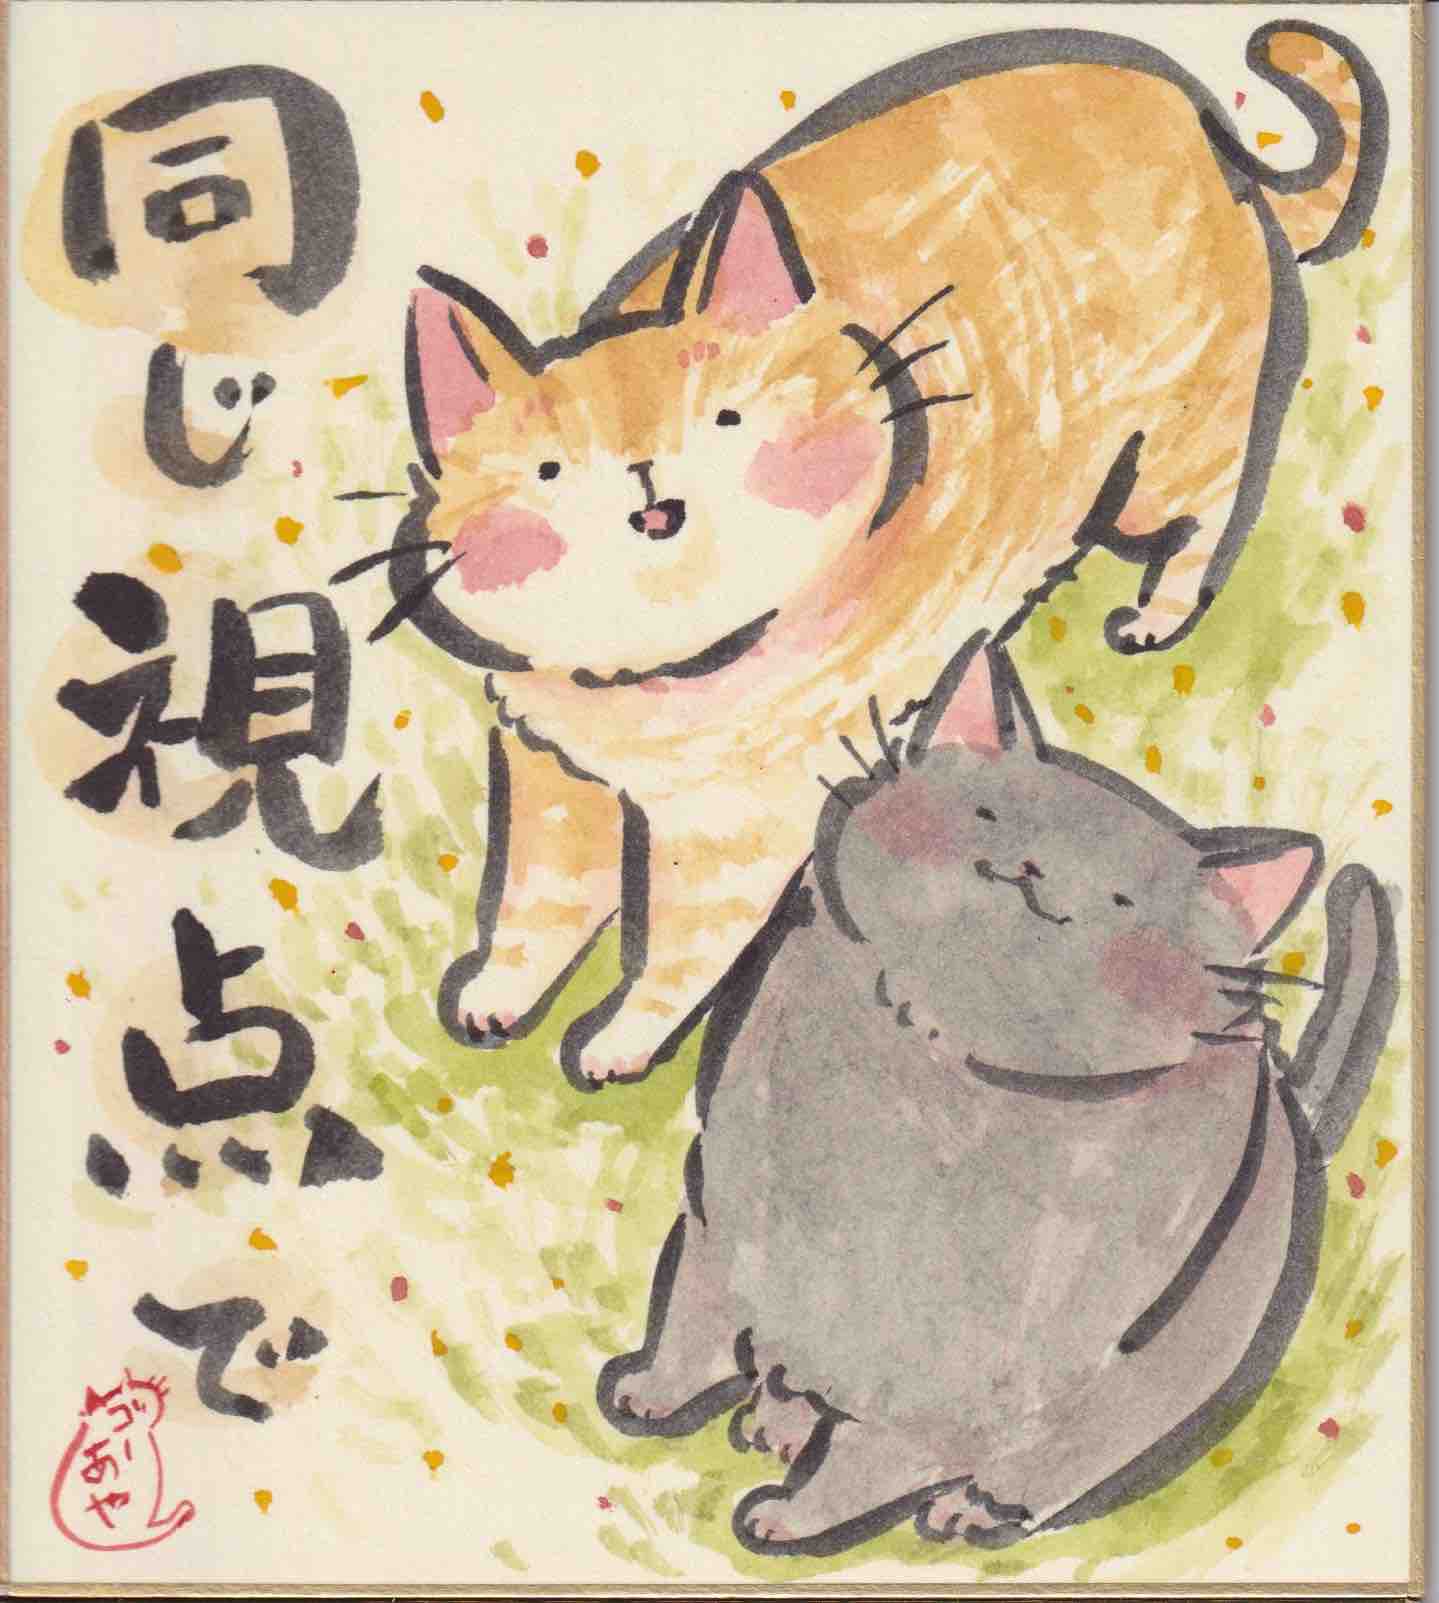 同じ視点で
ゴーあや